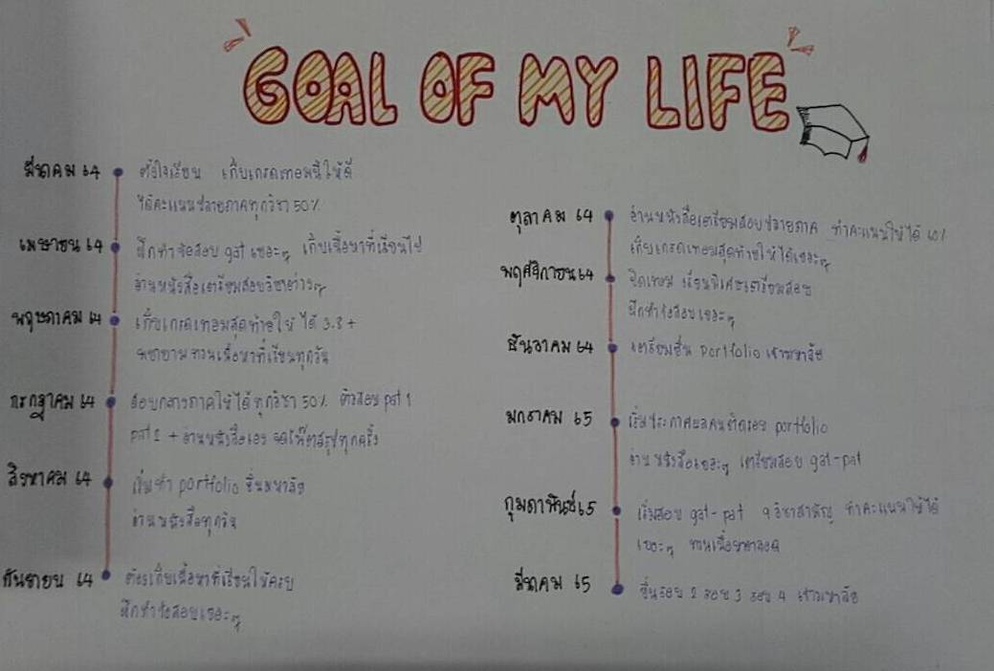 GOAL OF MY LIFE
มีนาคม 64
ตั้งใจเรียน เก็บเกรดเทอมนี้ให้ดี
ได้คะแนนปลายภาคทุกวิชา 50%
เมษายน 64
ฝึกทำข้อสอบ gat เยอะๆ เก็บเนื้อหาที่เรียนไป
อ่านหนังสือเตรียมสอบวิชาต่างๆ
พฤษภาคม 64
เก็บเกรดเทอมสุดท้ายให้ได้ 3.8+
พยายามทวนเนื้อหาที่เรียนทุกวัน
กรกฎาคม 64
สอบกลางภาคให้ได้ทุกวิชา 50% ติวสอบ pat 1
pat 2 + อ่านหนังสือเอง สรุปทุกครั้ง
สิงหาคม 64
เริ่มทำ portfolio ยื่นมหาลัย
อ่านหนังสือทุกวัน
กันยายน 64
ต้องเก็บเนื้อหาที่เรียนให้ครบ
ฝึกทำข้อสอบเยอะๆ
ตุลาคม 64
อ่านหนังสือเตรียมสอบปลายภาค ทำคะแนนให้ได้ 60%
เก็บเกรดเทอมสุดท้ายให้ได้เยอะๆ
พฤศจิกายน 64
ปิดเทอม เรียนพิเศษเตรียมสอบ
ฝึกทำข้อสอบเยอะๆ
ธันวาคม 64
เตรียมยื่น portfolio เข้ามหาลัย
มกราคม 65
เริ่มประกาศผลคนติดรอบ portfolio
อ่านหนังสือเยอะๆ เตรียมสอบ gat-pat
กุมภาพันธ์ 65
เริ่มสอบ gat-pat 9 วิชาสามัญ ทำคะแนนให้ได้
เยอะๆ ทวนเนื้อหาตลอด
มีนาคม 65
ยื่นรอบ 2 รอบ 3 รอบ 4 เข้ามหาลัย